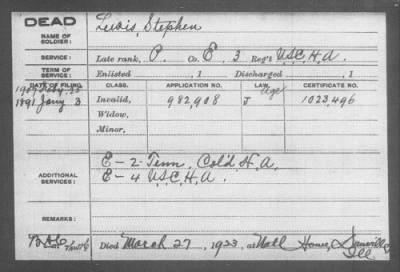 DEAD
NAME OF SOLDIER: Lewis, Stephen
SERVICE: Late rank, P. Co. E, 3 Reg't U.S.C.H.A.
TERM OF SERVICE: Enlisted , 1 Discharged , 1
DATE OF FILING. CLASS. APPLICATION NO. LAW. CERTIFICATE NO.
Age
1891 Jany 3 Invalid, 982,908 J 1023,496
Widow,
Minor,
ADDITIONAL SERVICES: E-2 Tenn. Cold H.A.
E-4 U.S.C.H.A.
REMARKS:
Died March 27, 1923, at Natl Home, Danville, Ill